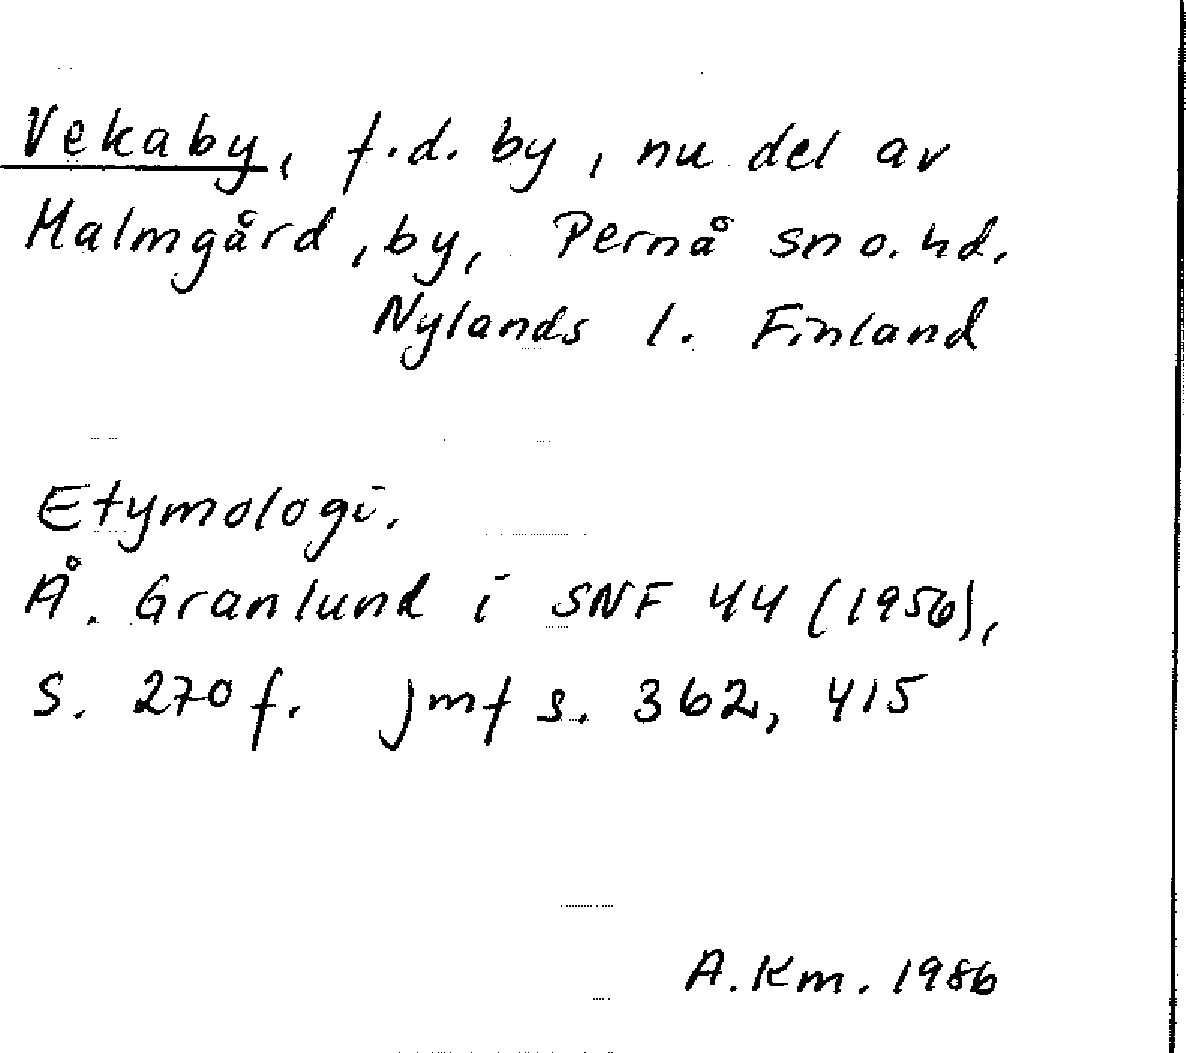 Vekaby, f.d. by, nu del av
Malmgård, by, Pernå sn o. hd.
Nylands l. Finland
Etymologi.
Å. Granlund i SNF 44 (1956),
s. 270 f. jmf s. 362, 415
A. Km. 1986